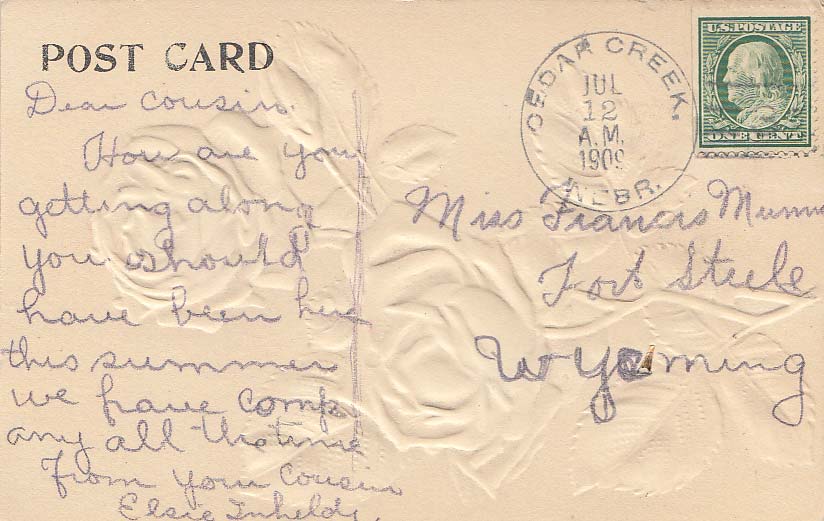 POST CARD
Dear Cousin.
How are you
getting along
you should
have been here
this summer
we have comp
any all the time
From your Cousin
Elsie
CEDAR CREEK.
JUL
12
A.M.
1909
NEBR.
U.S. POSTAGE
ONE CENT
Miss Francis
Fort Steele
Wyoming